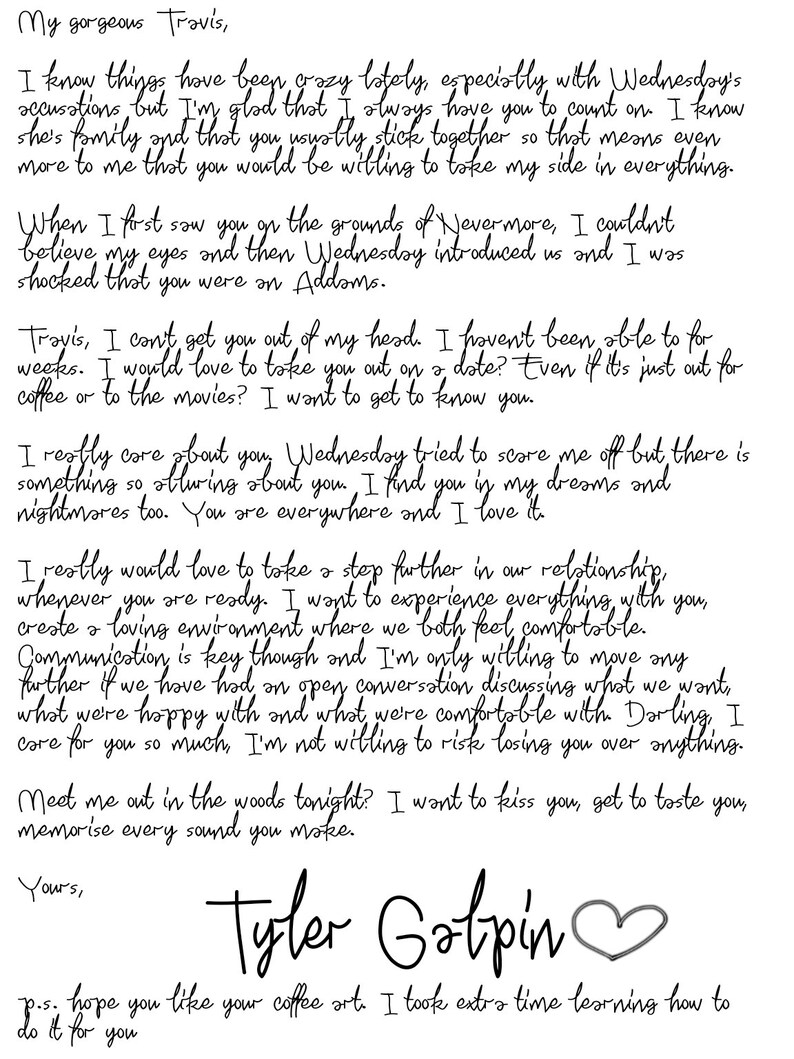 My gorgeous Travis,
I know things have been crazy lately, especially with Wednesday's
accusations but I'm glad that I always have you to count on. I know
she's family and that you usually stick together so that means even
more to me that you would be willing to take my side in everything.
When I first saw you on the grounds of Nevermore, I couldn't
believe my eyes and then Wednesday introduced us and I was
shocked that you were an Addams.
Travis, I can't get you out of my head. I haven't been able to for
weeks. I would love to take you out on a date? Even if it's just out for
coffee or to the movies? I want to get to know you.
I really care about you. Wednesday tried to scare me off but there is
something so alluring about you. I find you in my dreams and
nightmares too. You are everywhere and I love it.
I really would love to take a step further in our relationship,
whenever you are ready. I want to experience everything with you,
create a loving environment where we both feel comfortable.
Communication is key though and I'm only willing to move any
further if we have had an open conversation discussing what we want,
what we're happy with and what we're comfortable with. Darling, I
care for you so much, I'm not willing to risk losing you over anything.
Meet me out in the woods tonight? I want to kiss you, get to taste you,
memorise every sound you make.
Yours,
Tyler Galpin
p.s. hope you like your coffee art. I took extra time learning how to
do it for you